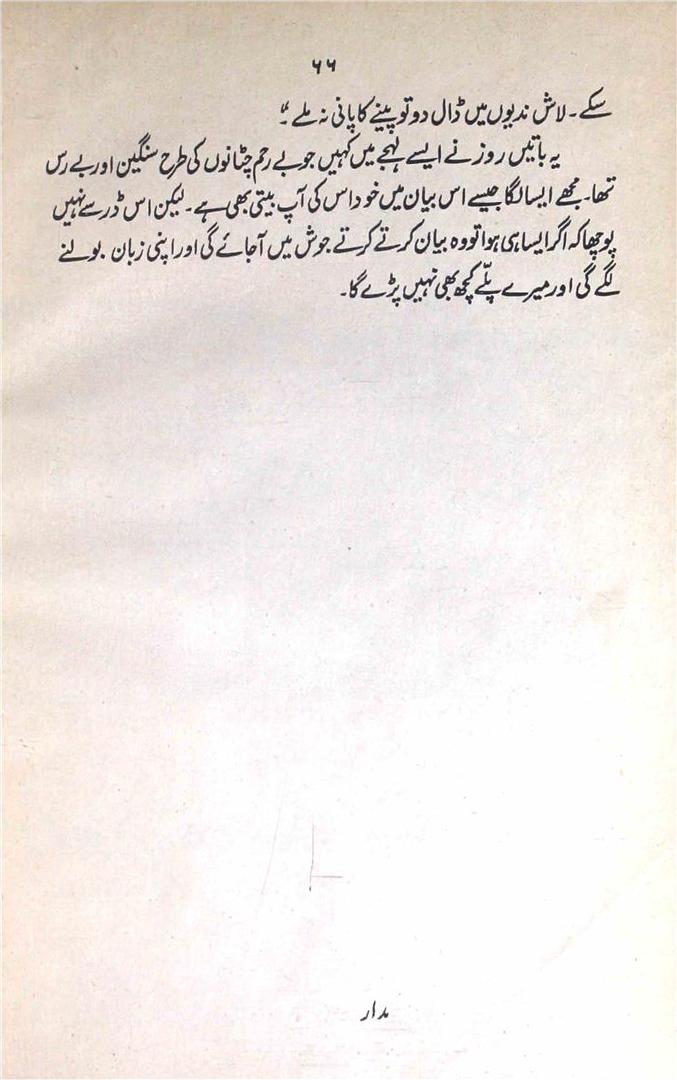 ۶۶
سکے۔ لاش ندیوں میں ڈال دو تو پینے کا پانی نہ ملے۔"
یہ باتیں روز نے ایسے لہجے میں کہیں جو بے رحم چٹانوں کی طرح سنگین اور بے رس
تھا۔ مجھے ایسا لگا جیسے اس بیان میں خود اس کی آپ بیتی بھی ہے۔ لیکن اس ڈر سے نہیں
پوچھا کہ اگر ایسا ہی ہوا تو وہ بیان کرتے کرتے جوش میں آجائے گی اور اپنی زبان بولنے
لگے گی اور میرے پلّے کچھ بھی نہیں پڑے گا۔
مدار